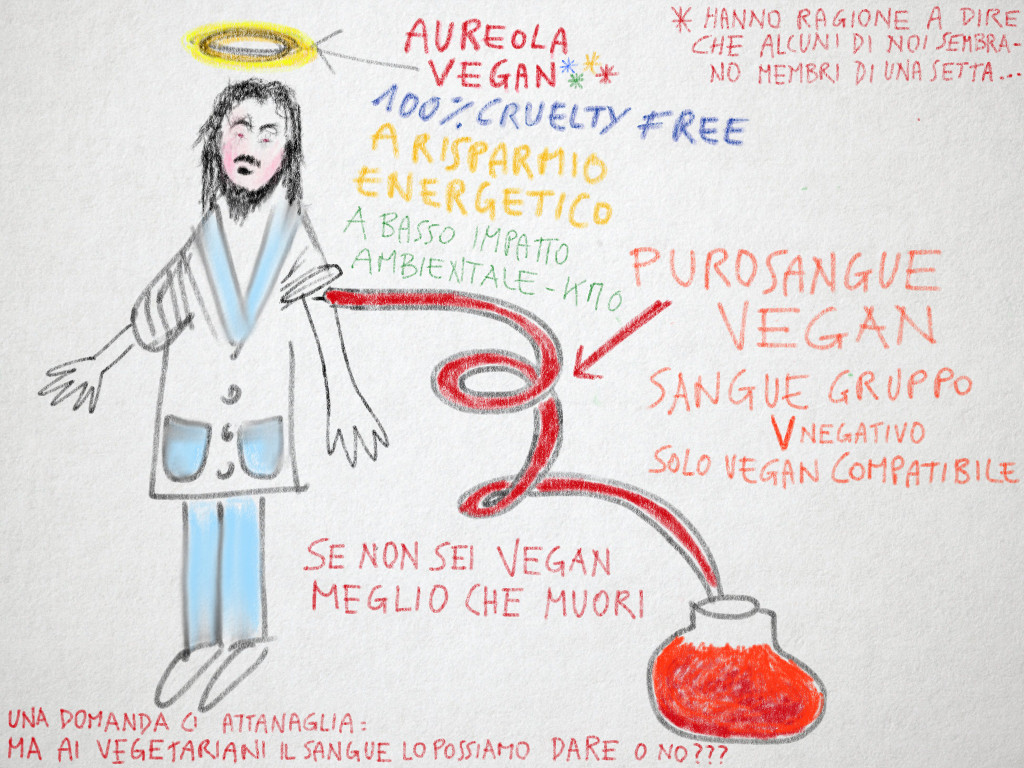 AUREOLA
VEGAN****
100% CRUELTY FREE
A RISPARMIO
ENERGETICO
A BASSO IMPATTO
AMBIENTALE - KM0
* HANNO RAGIONE A DIRE
CHE ALCUNI DI NOI SEMBRA-
NO MEMBRI DI UNA SETTA...
PUROSANGUE
VEGAN
SANGUE GRUPPO
V NEGATIVO
SOLO VEGAN COMPATIBILE
SE NON SEI VEGAN
MEGLIO CHE MUORI
UNA DOMANDA CI ATTANAGLIA:
MA AI VEGETARIANI IL SANGUE LO POSSIAMO DARE O NO???